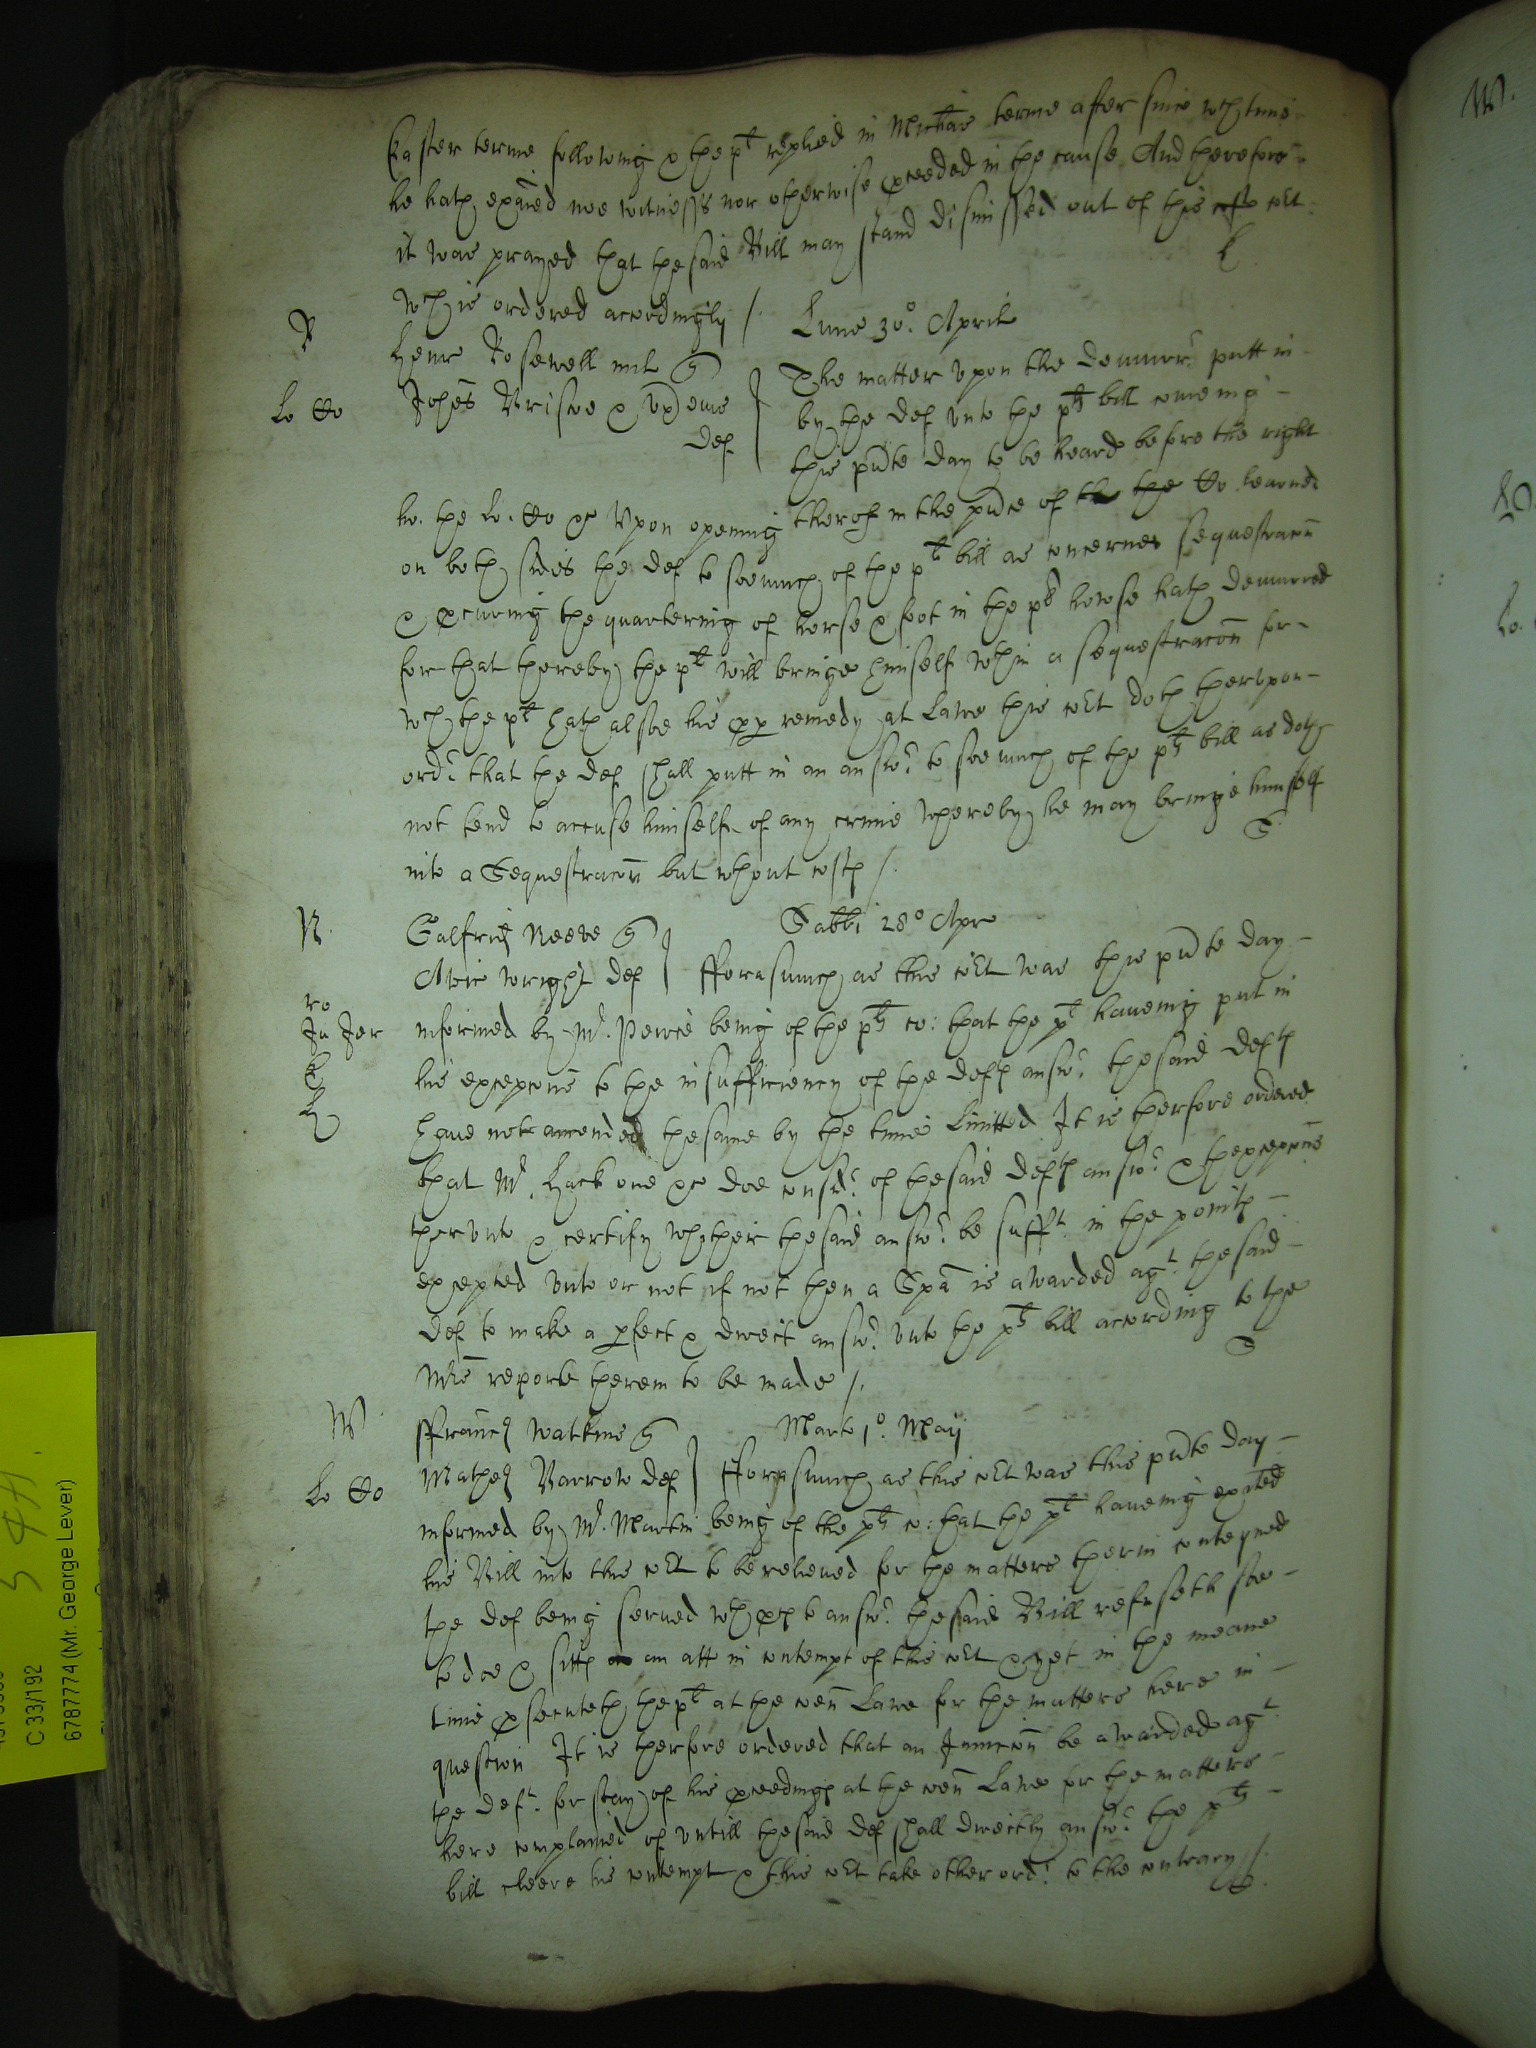 Easter terme following & the plt replied in Michas terme after since wch time
he hath exaied noe witnesses nor otherwise pceeded in the cause And therefore
it was prayed that the said Bill may stand dismissed out of this Cort
wch is ordered accordingly /.
R
Lune 30o. Aprilis
Henr Rosewell mil q
Johes Briscoe & ux eius def
Lo Co
The matter upon the demurr putt in
by the def unto the plts bill comeing
this pnte day to be heard before the right
ho. the Lo. Co &c Upon opening therof in the pnce of the Co. learned
on both sides the def to soe much of the plts bill as concernes sequestracon
& pcuring the quartering of horse & foot in the plts howse hath demurred
for that thereby the plt will bringe himself wthin a sequestracon for
wch the plt hath alsoe his pp remedy at Lawe this Cort doth therupon
ordr that the def shall putt in an answr to soe much of the plts bill as doth
not tend to accuse himselfe of any crime whereby he may bringe himself
into a Sequestracon but wthout costs /.
N.
Galfrid Neeve q
Alic Wright def
Sabbi 28o Apr
Forasmuch as this Cort was this pnte day
ro
Ju Jer
informed by Mr. Peirce being of the plts co: that the plt haveing put in
his excepcons to the insufficiency of the defts answr the said defts
have not amended the same by the time limitted It is therfore ordered
that Mr. Hack one &c doe considr of the said defts answr & thexcepcons
therunto & certify whether the said answr be sufft in the points
excepted unto or not if not then a Spa is awarded agt the said
def to make a pfect & direct answr unto the plts bill according to the
Mrs reporte therein to be made /.
W
Francs Watkins q
Mathes Barrow def
Marts 1o. Maij
Lo Co
Forasmuch as this Cort was this pnte day
informed by Mr. Martin being of the plts co: that the plt haveing exited
his Bill into this Cort to be releived for the matters therin conteyned
the def being served wth pcs to answr the said Bill refuseth soe
to doe & sitts an att in contempt of this Cort & yet in the meane
time psecuteth the plt at the coen Lawe for the matters here in
question It is therfore ordered that an Iniuncon be awarded agt
the deft. for stay of his pceedings at the coen Lawe for the matters
here complained of untill the said def shall directly answr the plts
bill cleere his contempt & this Cort take other ordr to the contrary /.
C 33/192
6787774 (Mr. George Lever)